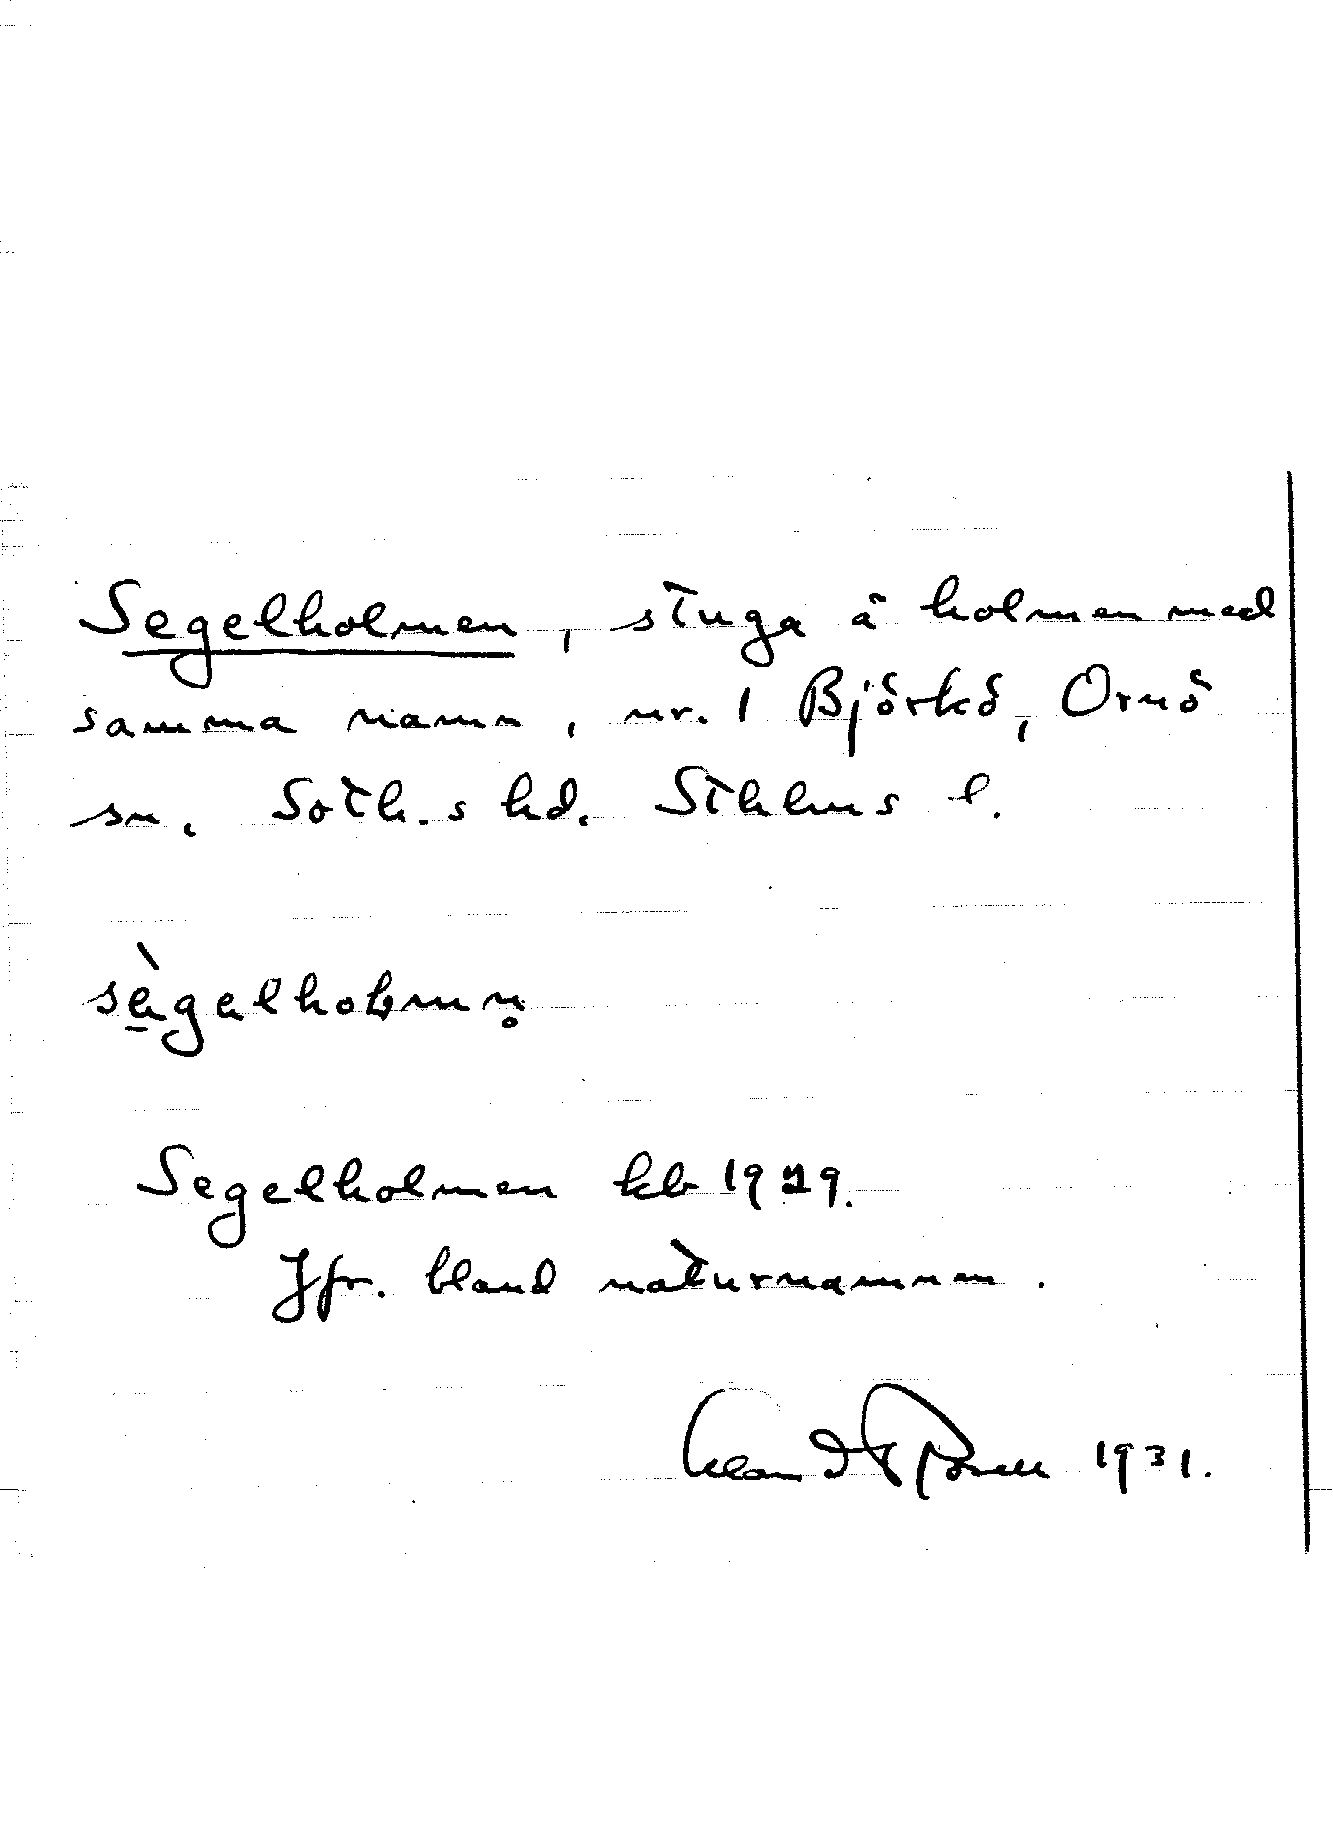 Segelholmen, stuga å holmen med
samma namn, nr. 1 Björkö, Ornö
sn, Soth.s hd. Sthlms l.
sè̱gelholmn̥
Segelholmen kb 1929.
Jfr. bland naturnamnen.
1931.